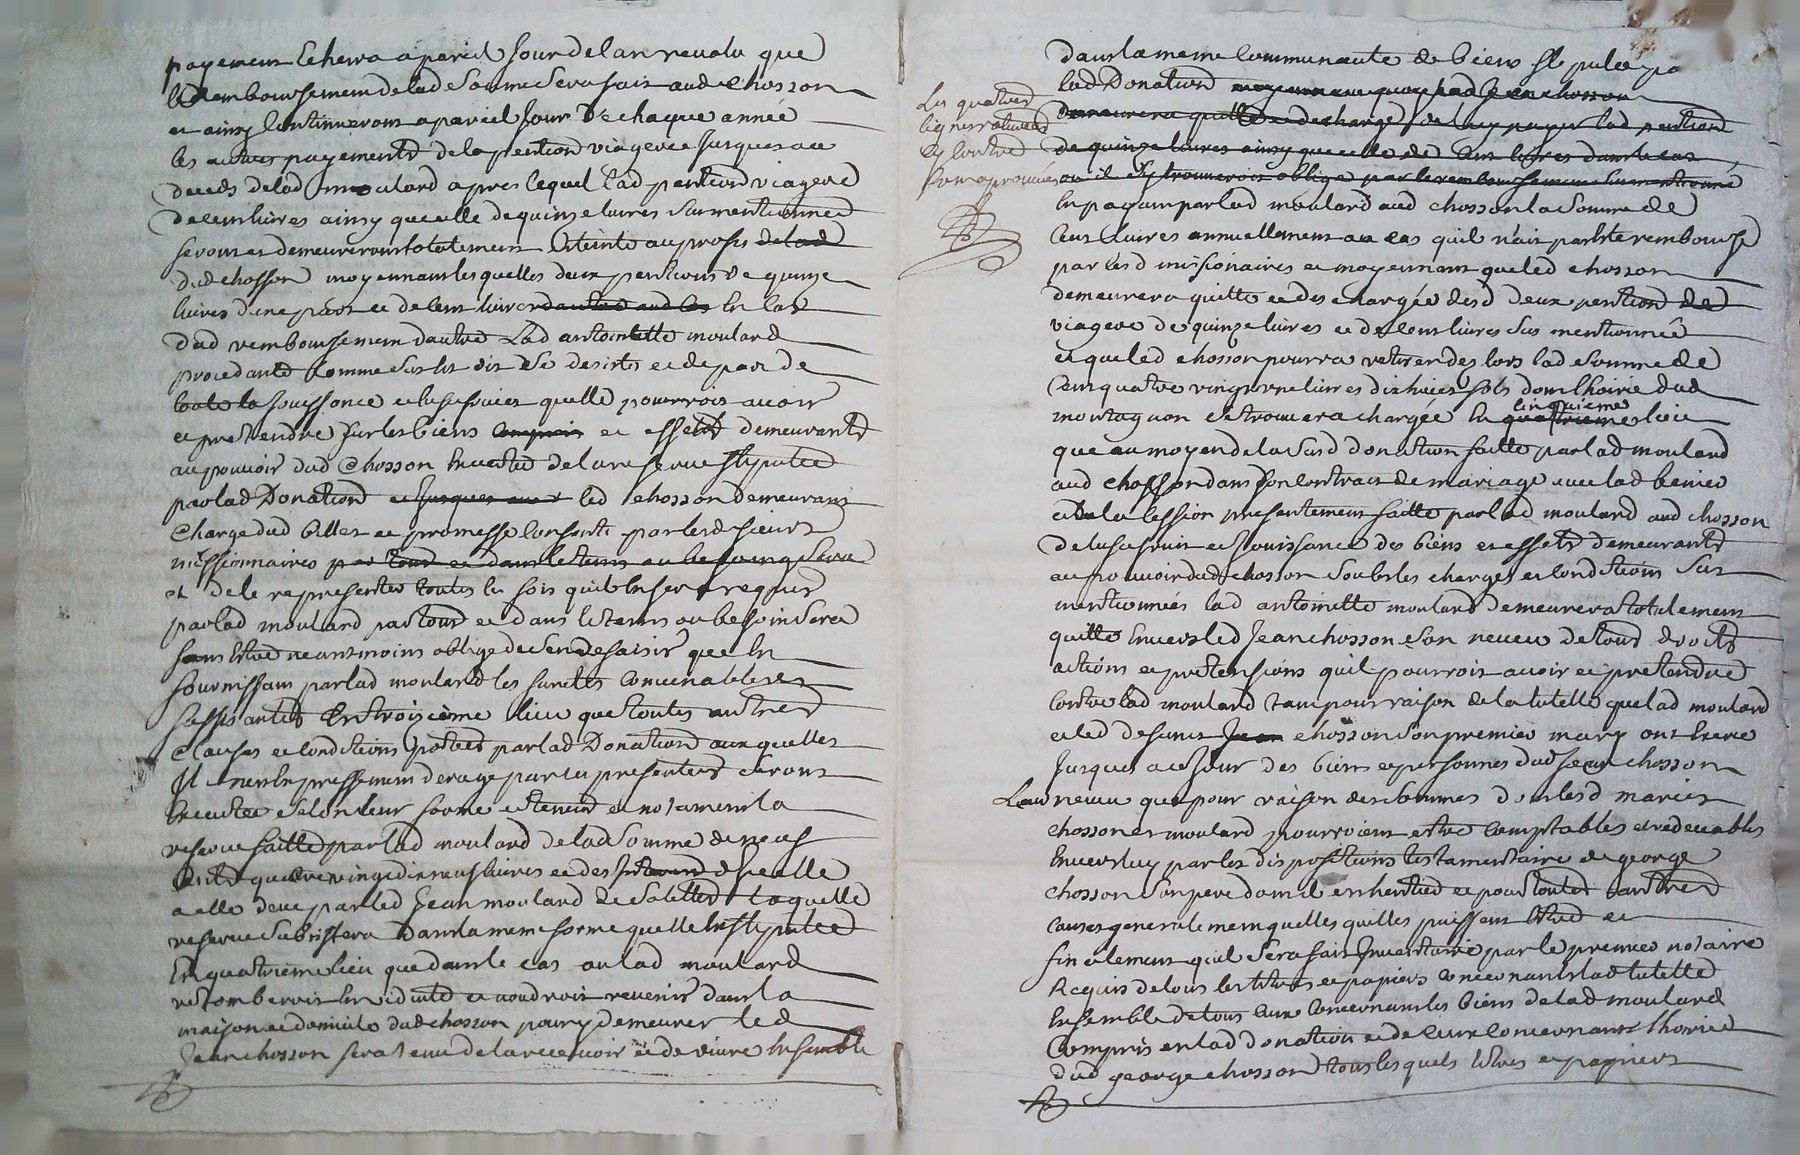 payement Echera a pareil Jour de lan revolu que
led remboursement de lad somme sera fait aud Chosson
et ainsy Continueront a pareil Jour de chaque année
les autres payements de la pention viagere Jusques au
deceds de lad moulard apres lequel lad pention viagere
de cent livres ainsy que celle de quinze livres susmentionnee
seront et demeureront totalement Eteinte au profit de lad
dud chosson moyennant lesquelles deux pentions de quinze
livres dune part et de cent livres dautre aud cas En cas
dud remboursement dautre Lad antoinette moulard
procedante Comme susest dit Se desiste et depart de
toute la Jouissance et usufruit quelle pourroit avoir
et pretendre sur les biens Compris et effets demeurants
au pouvoir dud Chosson En vertu de la reserve Stipulée
par lad Donation et Jusques aud led chosson demeurant
Chargé dud billet et promesse Consenti par lesd sieurs
missionnaires par tout et dans le tems ou besoing sera
et de le representer toutes les fois quil En sera requis
par lad moulard partout et dans le tems ou besoin sera
sans Estre neantmoins obligé de sen desaisir que En
fournissant par lad moulard les suretés Convenables et
suffisantes En troisieme lieu que toutes autres
Clauses et Conditions portées par lad Donation auxquelles
Il nest Expressement derogé par ces presentes seront
Executée selon leur forme et teneur et notament la
reserve faitte par lad moulard de lad Somme de neuf
Cents quatre vingt dix neuf livres et des Interets dicelle
a elle deue par led Jean moulard de Salettes laquelle
reserve subsistera dans la meme forme quelle Est stipulée
En quatrieme lieu que dans le cas ou lad moulard
retomberoit En viduité et voudroit revenir dans la
maison et domicile dud chosson pour y demeurer led
Jean chosson sera tenu de la recevoir et de vivre Ensemble
dans la meme Communauté de biens stipulée pa
lad Donation moyennant quoy led Jean chosson
demeurera quitte et dechargé de luy payer lad pention
de quinze livres ainsy que celle de Cent livres dans le cas
ou il sy trouveroit obligé par le remboursement susmentionné
Les quatres
lignes raturées
cy Contre
sont aprouvées
En payant par lad moulard aud chosson la somme de
Cent livres annuellement au cas quil nait pas Esté remboursé
par lesd missionaires et moyennant que led chosson
demeurera quitte et des chargée desd deux pention de
viagere de quinze livres et de Cent livres sus mentionnée
et que led chosson pourra retirer des lors lad somme de
Cent quatre vingt onze livres dix huict sols dont lhoirie dud
montagnon se trouvera chargée En quatrieme lieu
cinquieme
que au moyen de la susd donation faitte par lad moulard
aud chosson dans son contract de mariage avec lad benier
et de la Cession presentement faitte par lad moulard aud chosson
de lusufruit et Jouissance des biens et effets demeurants
au pouvoir dud chosson soubs les charges et Conditions sus
mentionnées lad antoinette moulard demeurera totalement
quitte Envers led Jean chosson son neveu de tous droits
actions et pretensions quil pourroit avoir et pretendre
Contre lad moulard tant pour raison de la tutelle que lad moulard
et led defunt Jean chosson son premier mary ont Exercé
Jusques a ce Jour des biens et personnes dud Jean chosson
Leur neveu que pour raison des sommes dont lesd mariés
chosson et moulard pourroient estre Comptables et redevables
Envers luy par les dispositions testamentaire de george
chosson son pere dont il est heritier et pour toutes autres
causes generalement quelles quelles puissent Etre et
finalement quil sera fait Inventaire par le premier notaire
Requis de tous les titres et papiers concernants lad tutelle
Ensemble de tous Ceux Concernant les biens de lad moulard
Compris en lad donation et de Ceux Concernants lhoirie
dud george chosson tous lesquels titres et papiers